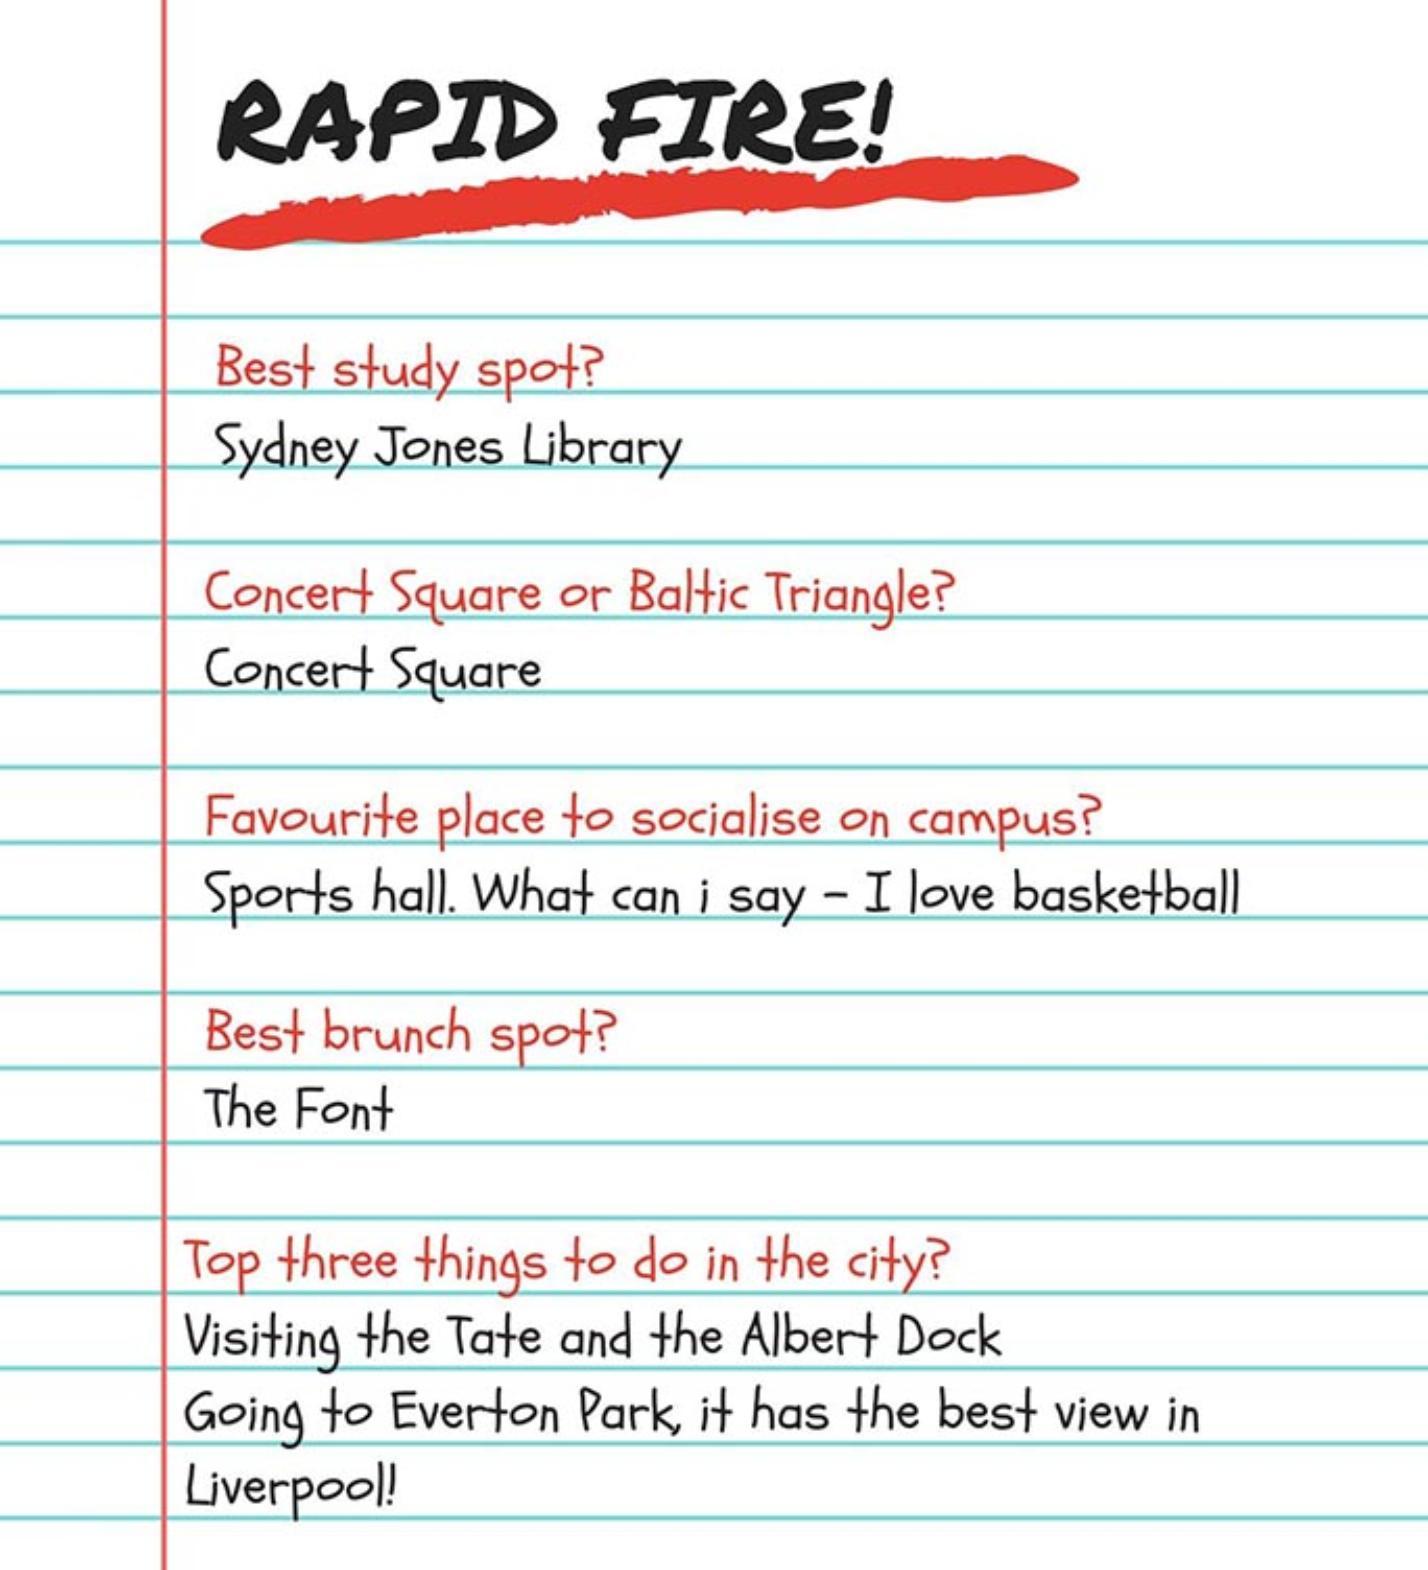 RAPID FIRE!
Best study spot?
Sydney Jones Library
Concert Square or Baltic Triangle?
Concert Square
Favourite place to socialise on campus?
Sports hall. What can i say - I love basketball
Best brunch spot?
The Font
Top three things to do in the city?
Visiting the Tate and the Albert Dock
Going to Everton Park, it has the best view in
Liverpool!